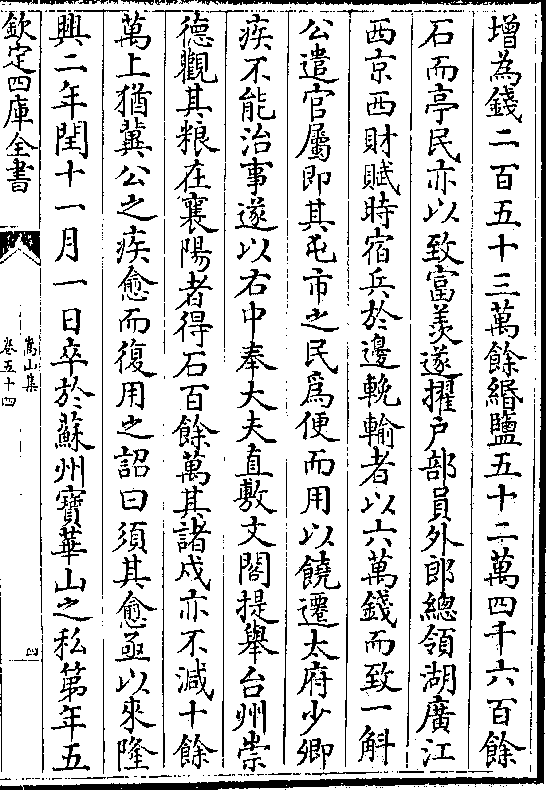 增為錢二百五十三萬餘緡鹽五十二萬四千六百餘
石而亭民亦以致富羡遂擢户部員外郎總領湖廣江
西京西財賦時宿兵於邊輓輸者以六萬錢而致一斛
公遣官屬即其屯市之民爲便而用以饒遷太府少卿
疾不能治事遂以右中奉大夫直敷文閣提舉台州崇
徳觀其粮在襄陽者得石百餘萬其諸戍亦不減十餘
萬上猶冀公之疾愈而復用之詔曰須其愈亟以來隆
興二年閏十一月一日卒於蘇州寶華山之私第年五
欽定四庫全書
嵩山集
卷五十四
四